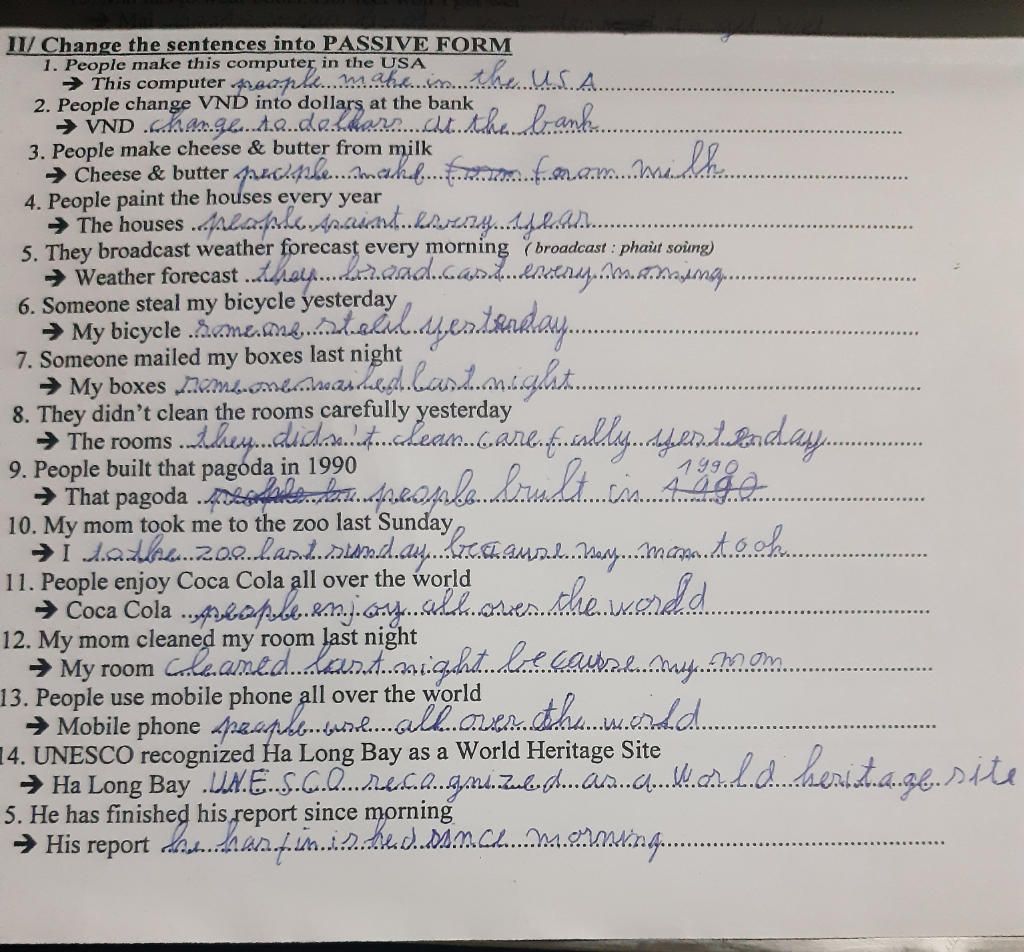 II/ Change the sentences into PASSIVE FORM
1. People make this computer in the USA
➔ This computer people make in the USA
2. People change VND into dollars at the bank
➔ VND change to dollars at the bank
3. People make cheese & butter from milk
➔ Cheese & butter people make from from milk
4. People paint the houses every year
➔ The houses people paint every year
5. They broadcast weather forecast every morning (broadcast : phaùt soùng)
➔ Weather forecast they broadcast every morning
6. Someone steal my bicycle yesterday
➔ My bicycle someone steal yesterday
7. Someone mailed my boxes last night
➔ My boxes someone mailed last night
8. They didn't clean the rooms carefully yesterday
➔ The rooms they didn't clean carefully yesterday
9. People built that pagoda in 1990
1990
➔ That pagoda people built in 1990
10. My mom took me to the zoo last Sunday
➔ I to the zoo last sunday because my mom took
11. People enjoy Coca Cola all over the world
➔ Coca Cola people enjoy all over the world
12. My mom cleaned my room last night
➔ My room cleaned last night because my mom
13. People use mobile phone all over the world
➔ Mobile phone people use all over the world
14. UNESCO recognized Ha Long Bay as a World Heritage Site
➔ Ha Long Bay UNESCO recognized as a World heritage site
5. He has finished his report since morning
➔ His report he has finished since morning